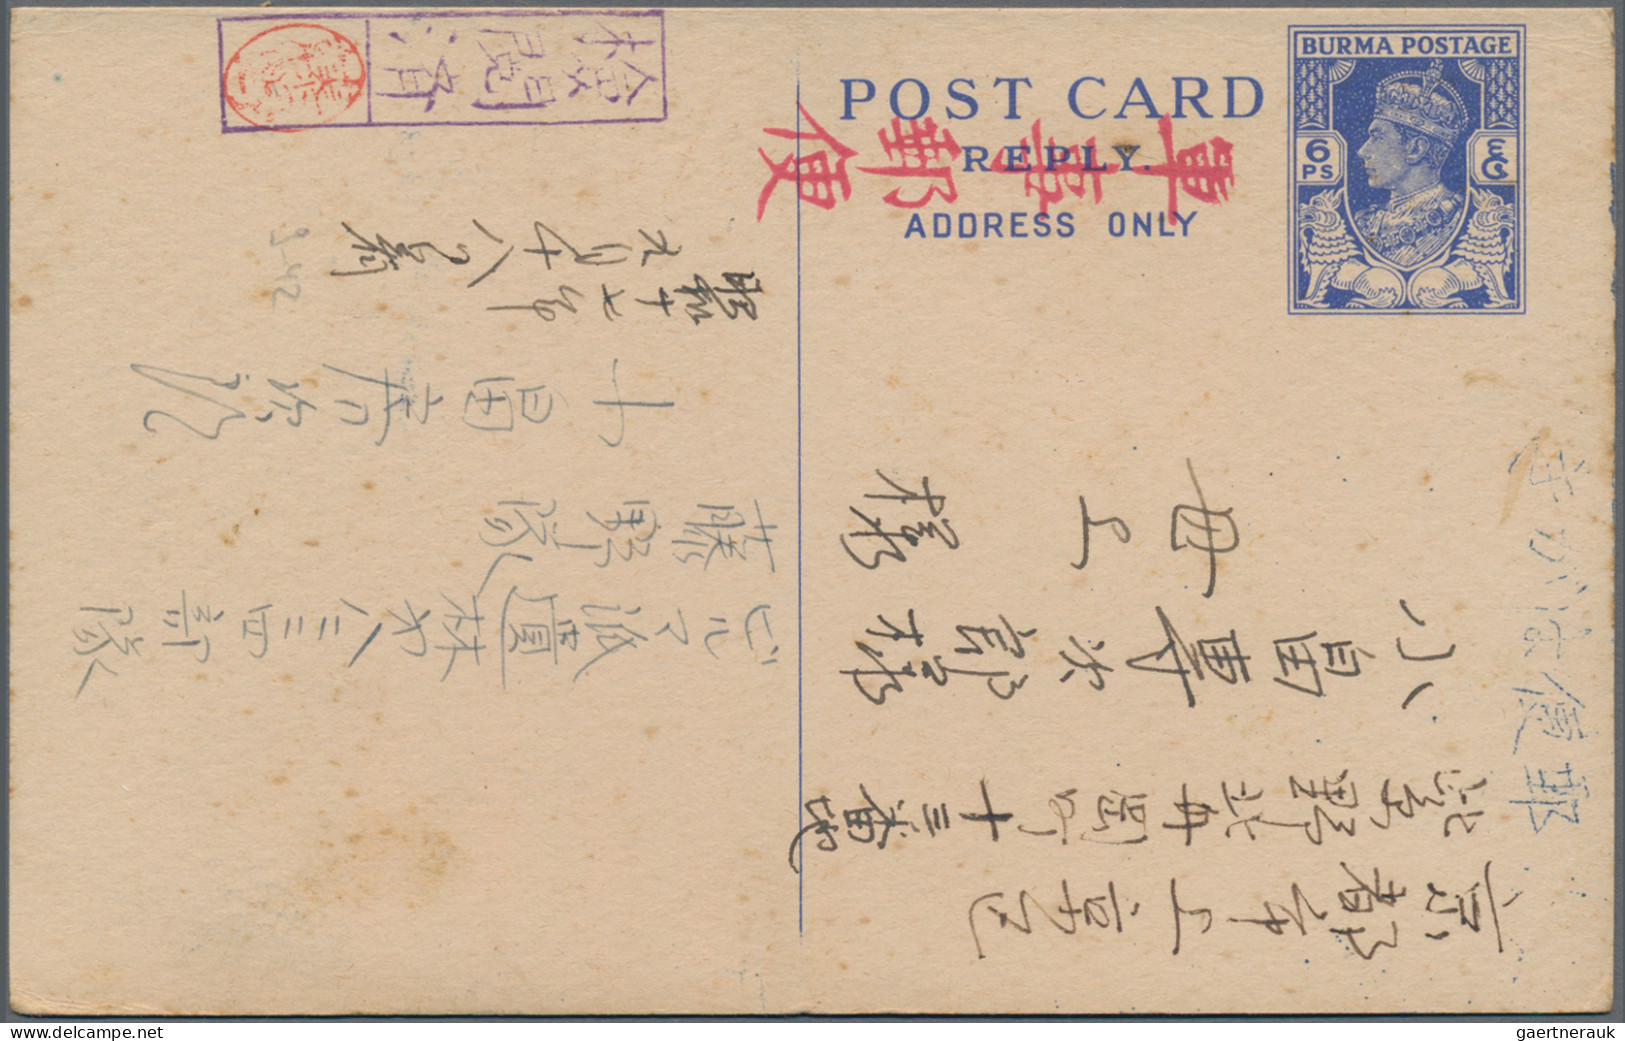 BURMA POSTAGE
6 PS
POST CARD
REPLY.
ADDRESS ONLY
軍事郵便
検閲済
京都市上京区
紫野北舟岡町十三番地
小畠寿次郎様
母上様
ビルマ派遣林第八三三四部隊
藤野隊
小畠
昭和十七年
九月十八日
9-42
gaertnerauk